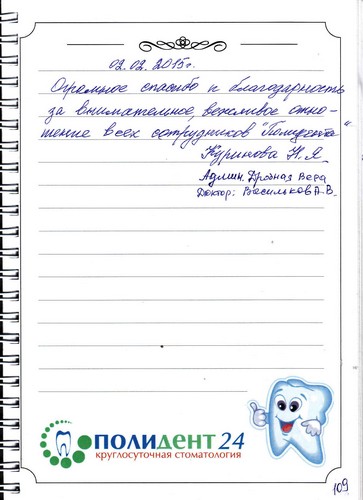 02.02.2015г.
Огромное спасибо и благодарность
за внимательное, вежливое отно-
шение всех сотрудников "Полидента"
Куринова Н.Я.
Админ. Дрэная Вера
Доктор: Васильков А.В.
ПОЛИДЕНТ 24
круглосуточная стоматология
109